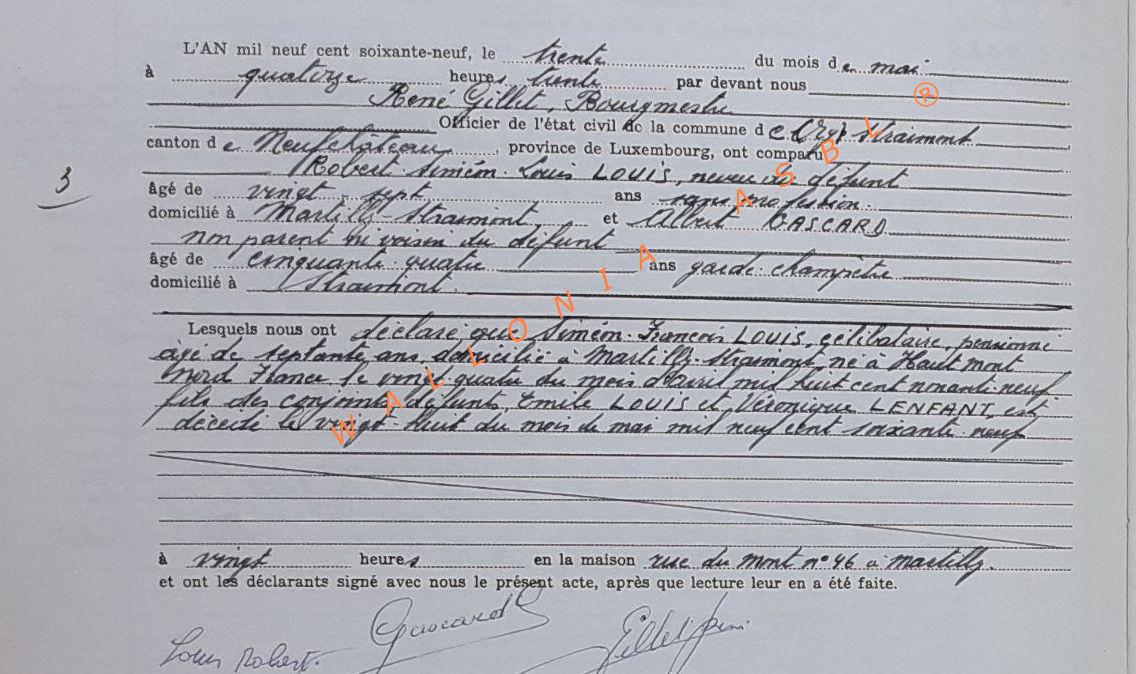 L'AN mil neuf cent soixante-neuf, le trente du mois de mai
à quatorze heures trente par devant nous
René Gillet, Bourgmestre
Officier de l'état civil de la commune de Straimont
canton de Neufchâteau, province de Luxembourg, ont comparu
Robert Siméon Louis LOUIS, neveu du défunt
3
âgé de vingt-sept ans sans profession
domicilié à Martilly-Straimont et Albert GASCARD
non parent ni voisin du défunt
âgé de cinquante-quatre ans garde-champêtre
domicilié à Straimont.
Lesquels nous ont déclaré que Siméon-François LOUIS, célibataire, pensionné
âgé de septante ans, domicilié à Martilly-Straimont né à Haut mont
Nord France le vingt-quatre du mois d'avril mil huit cent nonante neuf
fils des conjoints défunts, Emile LOUIS et Véronique LENFANT, est
décédé le vingt-huit du mois de mai mil neuf cent soixante-neuf
à vingt heures en la maison rue du Mont n° 46 à Martilly.
et ont les déclarants signé avec nous le présent acte, après que lecture leur en a été faite.
Gascard
Gillet
Louis Robert.
WALLONIA ASBL ®